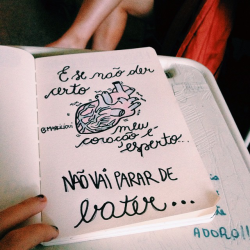 E se não der
certo
meu
coração é
esperto...
NÃO VAI PARAR DE
bater...
ADORO!!